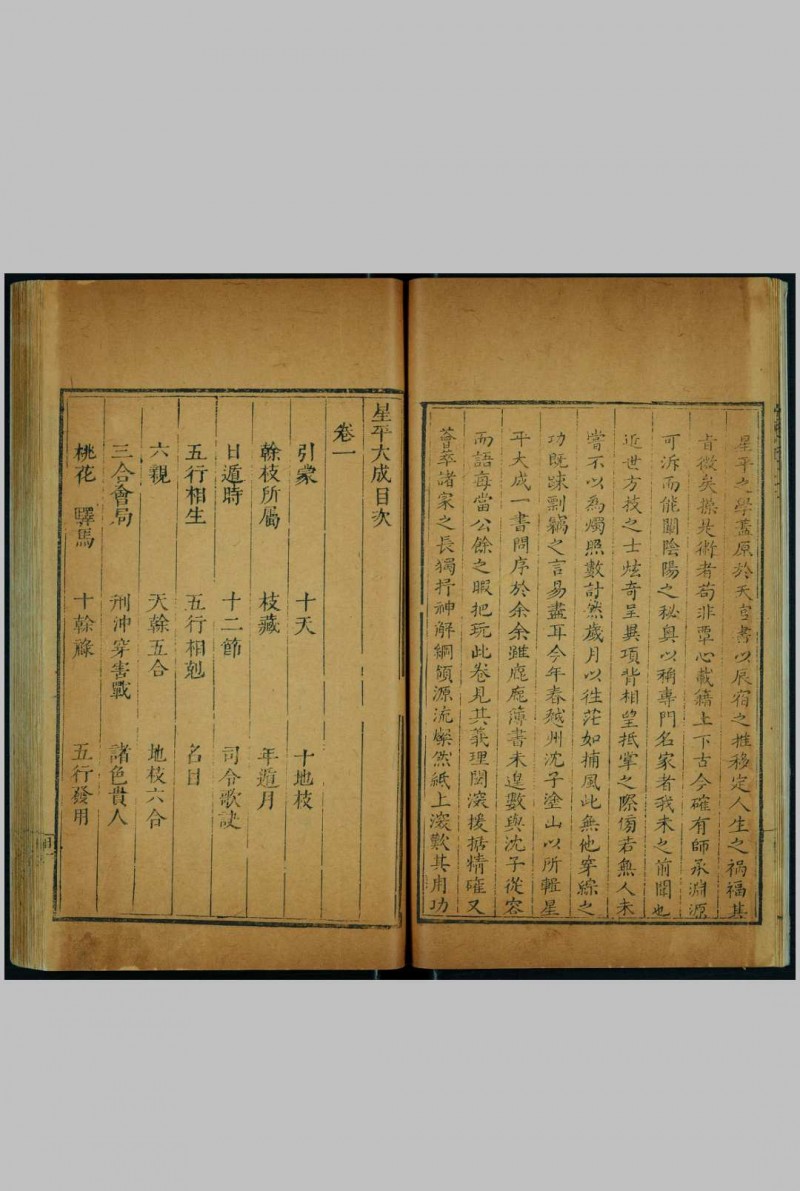 星平之學蓋原於天官書以辰宿之推移定人生之禍福其
旨微矣操是術者苟非覃心載籍上下古今確有師承淵源
可泝而能闡陰陽之秘奥以稱專門名家者我未之前聞也
近世方技之士炫奇呈異項背相望抵掌之際傍若無人未
嘗不以為燭照數計然歲月以徃茫如捕風此無他穿綜之
功既踈剽竊之言易盡耳今年春越州沈子塗山以所輯星
平大成一書問序於余余雖鹿鹿簿書未遑數與沈子從容
而語每當公餘之暇把玩此卷見其義理閎深援据精確又
薈萃諸家之長獨抒神解綱領源流燦然紙上深歎其用功
星平大成目次
卷一
引蒙 十天 十地枝
榦枝所屬 枝藏 年遁月
日遁時 十二節 司令歌訣
五行相生 五行相剋 名目
六親 天榦五合 地枝六合
三合會局 刑沖穿害戰 諸色貴人
桃花 驛馬 十榦祿 五行發用